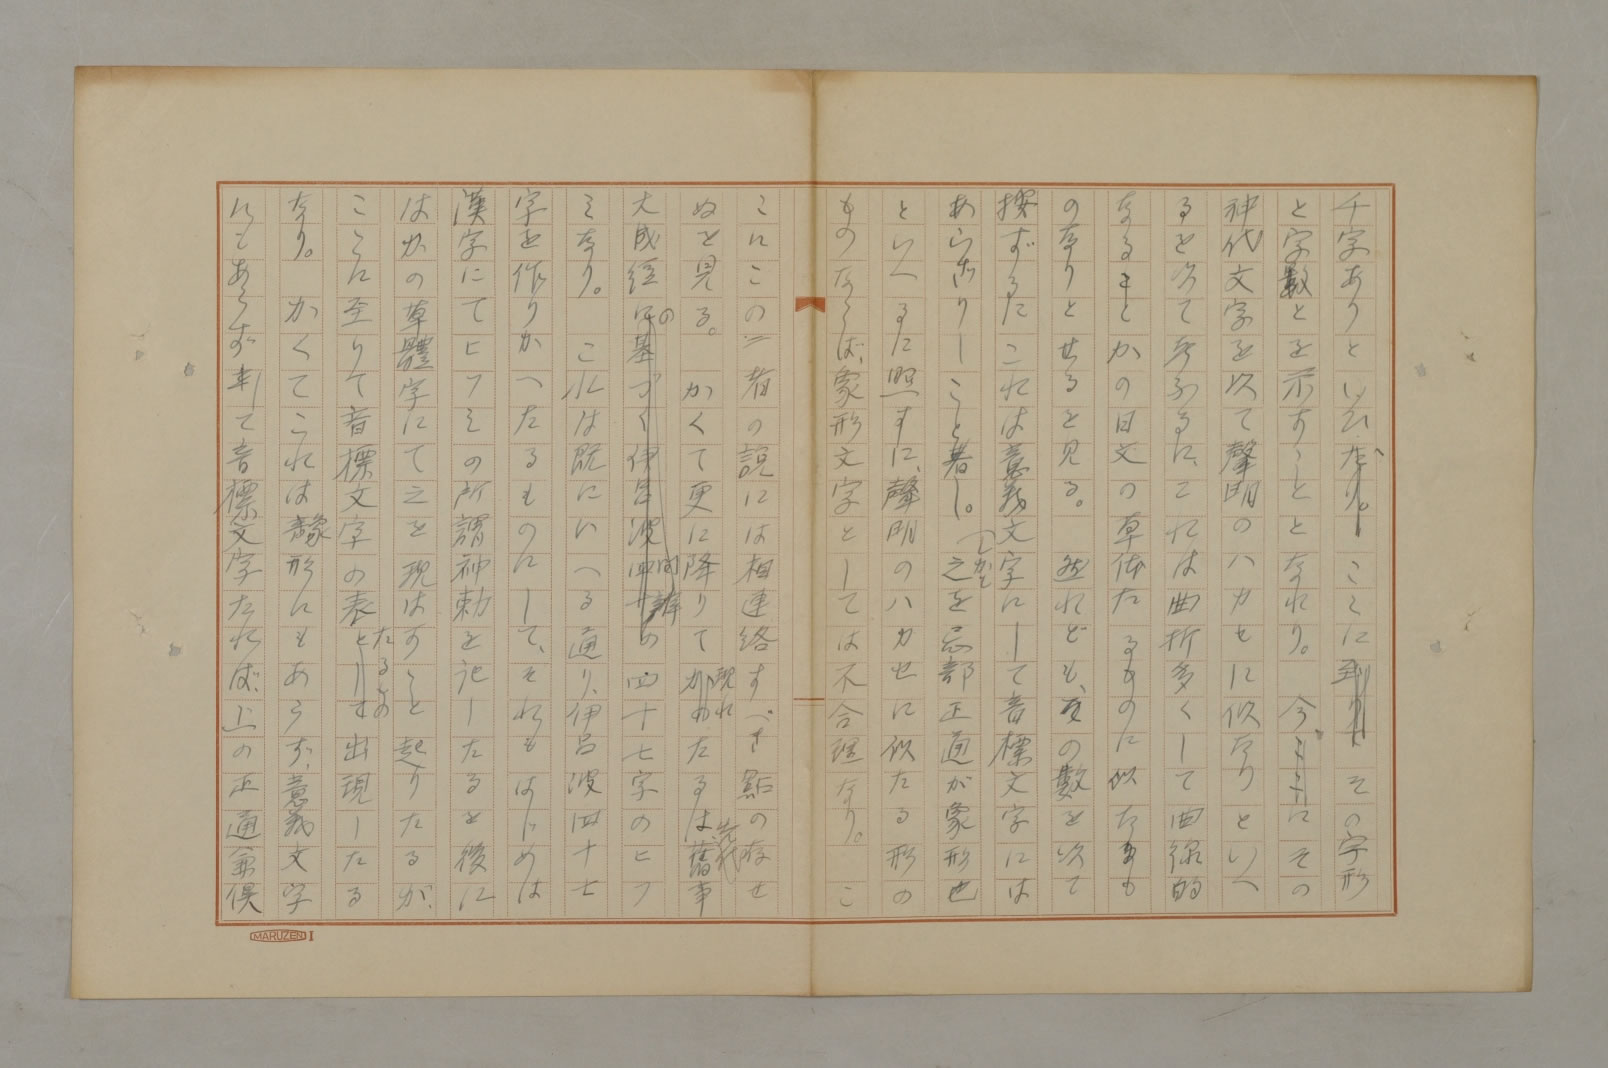 千字ありといひたり。ここに到りてその字形
と字數とを示すこととなれり。今ここにその
神代文字を以て聲明のハカセに似たりといへ
るを以て考ふるに、これは曲折多くして曲線的
なることかの日文の草体たるものに似たるも
のなりとせるを見る。然れども、その數を以て
按ずるにこれは意義文字にして音標文字には
あらざりしこと著し。しかも之を忌部正通が象形也
といへるに照すに、聲明のハカセに似たる形の
ものならば、象形文字としては不合理なり。こ
こにこの二者の説には相連絡すべき點の存せ
ぬを見る。かくて更に降りて現れたるは先代舊事
大成經の四十七字のヒフ
ミなり。これは既にいへる通り、伊呂波四十七
字を作りかへたるものにして、それもはじめは
漢字にてヒフミの所謂神勅を記したるを後に
はかの草體字にて之を現はすこと起りたるが、
ここに至りて音標文字の表たるもの出現したる
なり。かくてこれは象形にもあらず、意義文字
にもあらず、して音標文字たれば、上の正通兼倶
MARUZEN I